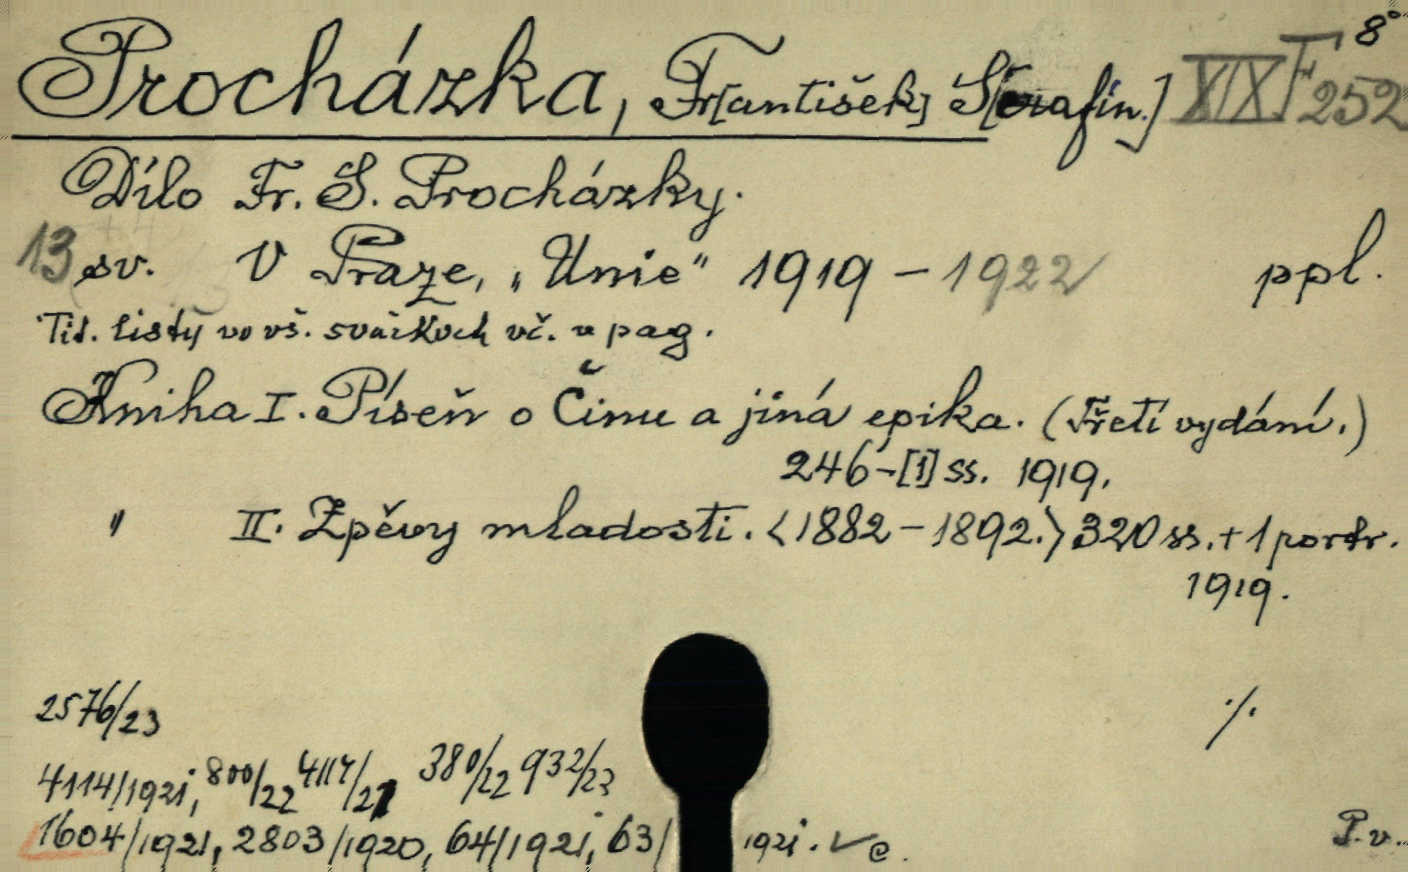 Procházka, Fr[antišek] S[erafin.] XIX F 252 8°
Dílo Fr. S. Procházky.
13 sv. V Praze, „Unie" 1919 - 1922 ppl.
Tit. listy ve vš. svazkoch vč. v pag.
Kniha I. Píseň o Činu a jiná epika. (Třetí vydání.)
246-[1] ss. 1919.
" II. Zpěvy mladosti. <1882 - 1892.> 320 ss. + 1 portr.
1919.
2576/23 ./.
4114/1921, 800/22 4117/21 380/22 932/23
1604/1921, 2803/1920, 64/1921, 63/1921.
P. v.